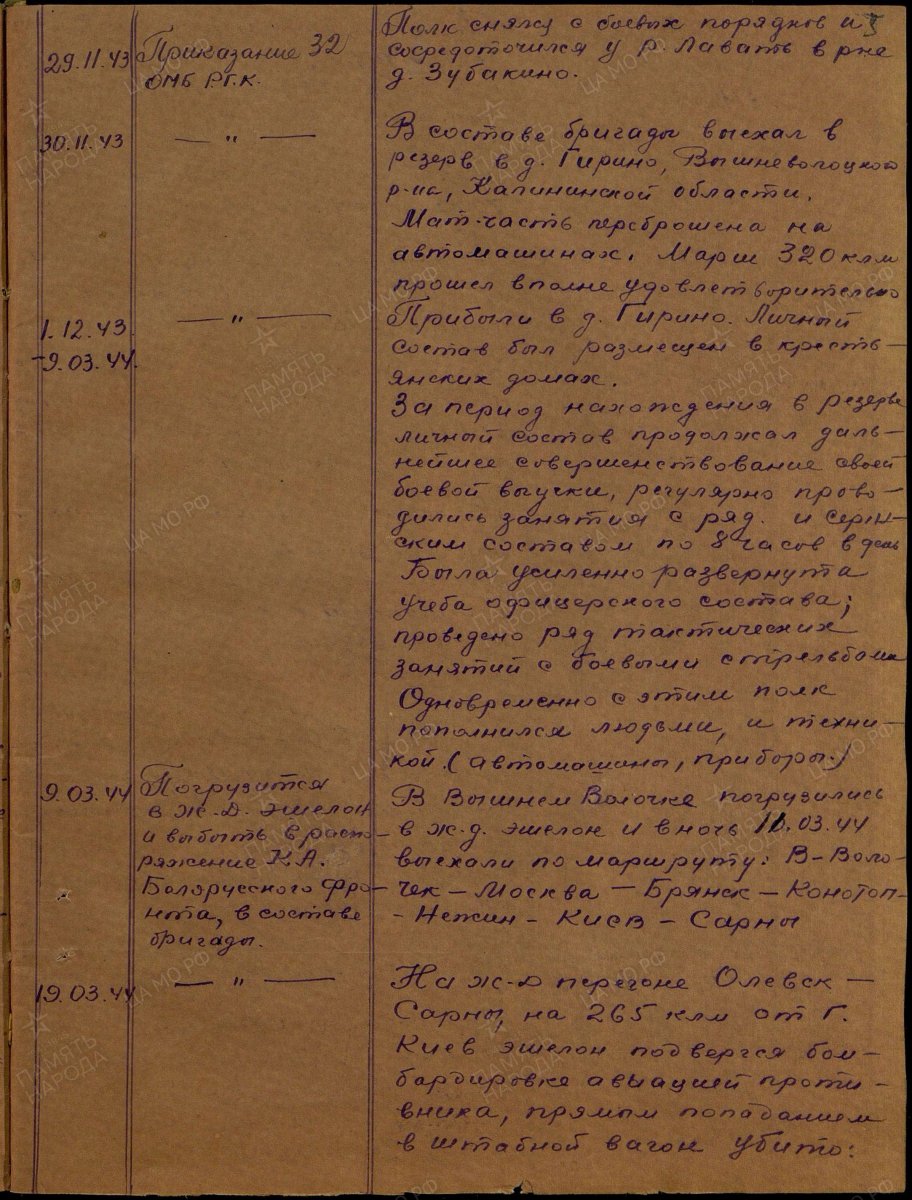 5
29.11.43
Приказание 32
ОМБ Р.Г.К.
Полк снялся с боевых порядков и
сосредоточился у р. Лавать в р-не
д. Зубакино.
30.11.43
— " —
В составе бригады выехал в
резерв в д. Гирино, Вышневолоцкого
р-на, Калининской области.
Мат-часть переброшена на
автомашинах. Марш 320 клм
прошел вполне удовлетворительно
1.12.43.
-9.03.44.
— " —
Прибыли в д. Гирино. Личный
состав был размещен в кресть-
янских домах.
За период нахождения в резерве
личный состав продолжал даль-
нейшее совершенствование своей
боевой выучки, регулярно прово-
дились занятия с ряд. и сержан-
ским составом по 8 часов в день
Была усиленно развернута
учеба офицерского состава;
проведено ряд тактических
занятий с боевыми стрельбами
Одновременно с этим полк
пополнился людьми, и техни-
кой. (автомашины, приборы.)
9.03.44
Погрузится
в ж.-д. эшелон
и выбыть в распо-
ряжение К.А.
Белорусского Фро-
нта, в составе
бригады.
В Вышнем Волочке погрузились
в ж.д. эшелон и в ночь 11.03.44
выехали по маршруту: В-Воло-
чек – Москва – Брянск – Конотоп –
- Нежин – Киев – Сарны
19.03.44
— " —
На ж-д перегоне Олевск –
Сарны, на 265 клм от г.
Киев эшелон подвергся бом-
бардировке авиацией проти-
вника, прямым попаданием
в штабной вагон убито: